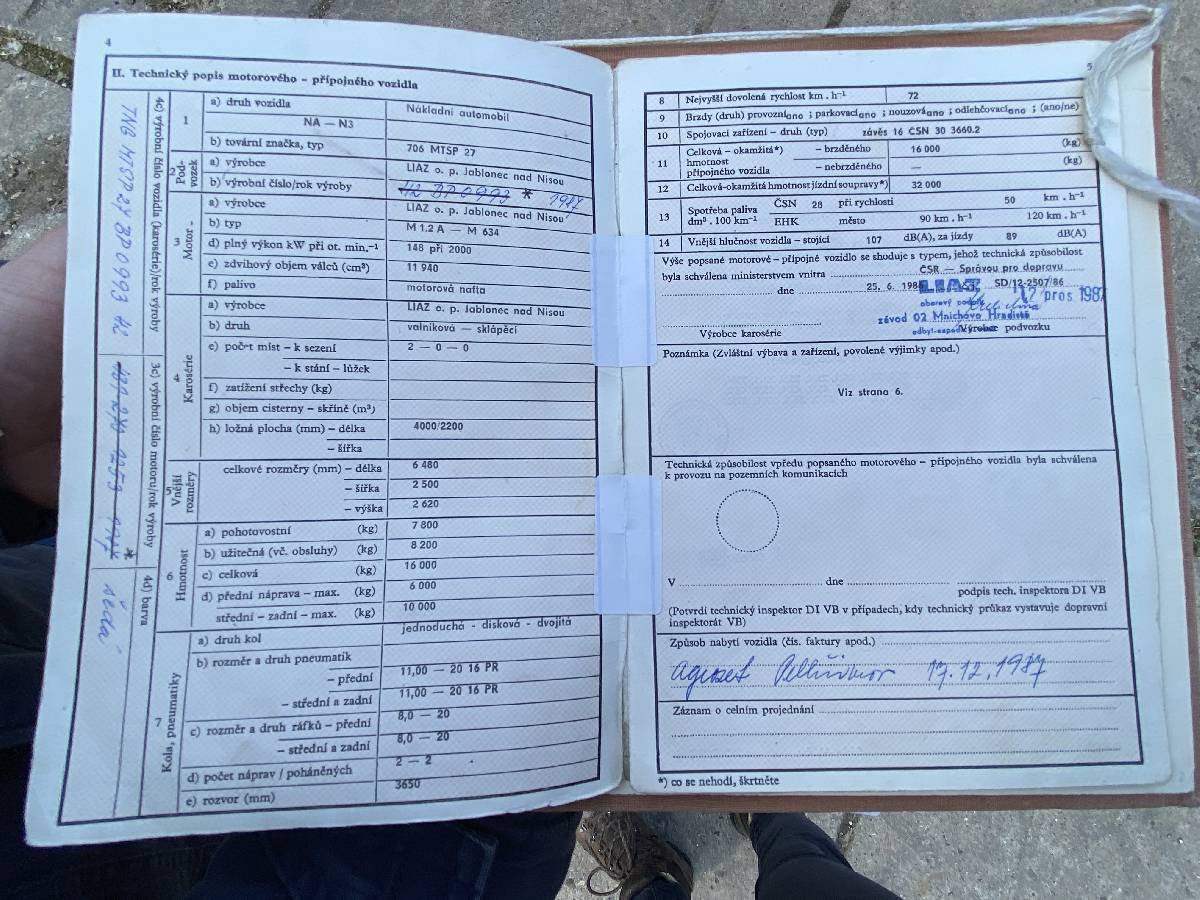 4
II. Technický popis motorového – přípojného vozidla
1
a) druh vozidla
Nákladní automobil
NA — N3
b) tovární značka, typ
706 MTSP 27
2
Pod-
vozek
a) výrobce
LIAZ o. p. Jablonec nad Nisou
b) výrobní číslo/rok výroby
HZ BP0993 * 1987
3
Motor
a) výrobce
LIAZ o. p. Jablonec nad Nisou
b) typ
M 1.2 A — M 634
d) plný výkon kW při ot. min.⁻¹
148 při 2000
e) zdvihový objem válců (cm³)
11 940
f) palivo
motorová nafta
4
Karosérie
a) výrobce
LIAZ o. p. Jablonec nad Nisou
b) druh
valníková — sklápěcí
e) počet míst – k sezení
2 — 0 — 0
– k stání – lůžek
f) zatížení střechy (kg)
g) objem cisterny – skříně (m³)
h) ložná plocha (mm) – délka
4000/2200
– šířka
5
Vnější
rozměry
celkové rozměry (mm) – délka
6 480
– šířka
2 500
– výška
2 620
6
Hmotnost
a) pohotovostní (kg)
7 800
b) užitečná (vč. obsluhy) (kg)
8 200
c) celková (kg)
16 000
d) přední náprava – max. (kg)
6 000
střední – zadní – max. (kg)
10 000
7
Kola, pneumatiky
a) druh kol
jednoduchá - disková - dvojitá
b) rozměr a druh pneumatik
– přední
11,00 — 20 16 PR
– střední a zadní
11,00 — 20 16 PR
c) rozměr a druh ráfků – přední
8,0 — 20
– střední a zadní
8,0 — 20
d) počet náprav / poháněných
2 — 2
e) rozvor (mm)
3650
4c) výrobní číslo vozidla (karosérie)/rok výroby
TNB MTSP27 BP0993 HZ
3c) výrobní číslo motoru/rok výroby
4d) barva
šedá
5
8 Nejvyšší dovolená rychlost km . h⁻¹ 72
9 Brzdy (druh) provozní ano ; parkovací ano ; nouzová ano ; odlehčovací ano ; (ano/ne)
10 Spojovací zařízení – druh (typ) závěs 16 ČSN 30 3660.2
11
Celková – okamžitá*)
hmotnost
přípojného vozidla
– brzděného 16 000 (kg)
– nebrzděného — (kg)
12 Celková-okamžitá hmotnost jízdní soupravy*) 32 000
13 Spotřeba paliva
dm³ . 100 km⁻¹
ČSN 28 při rychlosti 50 km . h⁻¹
EHK město 90 km . h⁻¹ 120 km . h⁻¹
14 Vnější hlučnost vozidla – stojící 107 dB(A), za jízdy 89 dB(A)
Výše popsané motorové – přípojné vozidlo se shoduje s typem, jehož technická způsobilost
byla schválena ministerstvem vnitra ČSR — Správou pro dopravu
dne 25. 6. 1986 SD/12-2507/86
LIAZ
oborový podnik
17 pros 1987
závod 02 Mnichovo Hradiště
Výrobce karosérie
Výrobce podvozku
Poznámka (Zvláštní výbava a zařízení, povolené výjimky apod.)
Viz strana 6.
Technická způsobilost vpředu popsaného motorového – přípojného vozidla byla schválena
k provozu na pozemních komunikacích
V dne
podpis tech. inspektora DI VB
(Potvrdí technický inspektor DI VB v případech, kdy technický průkaz vystavuje dopravní
inspektorát VB)
Způsob nabytí vozidla (čís. faktury apod.)
Agrozet Pelhřimov 17.12.1987
Záznam o celním projednání
*) co se nehodí, škrtněte